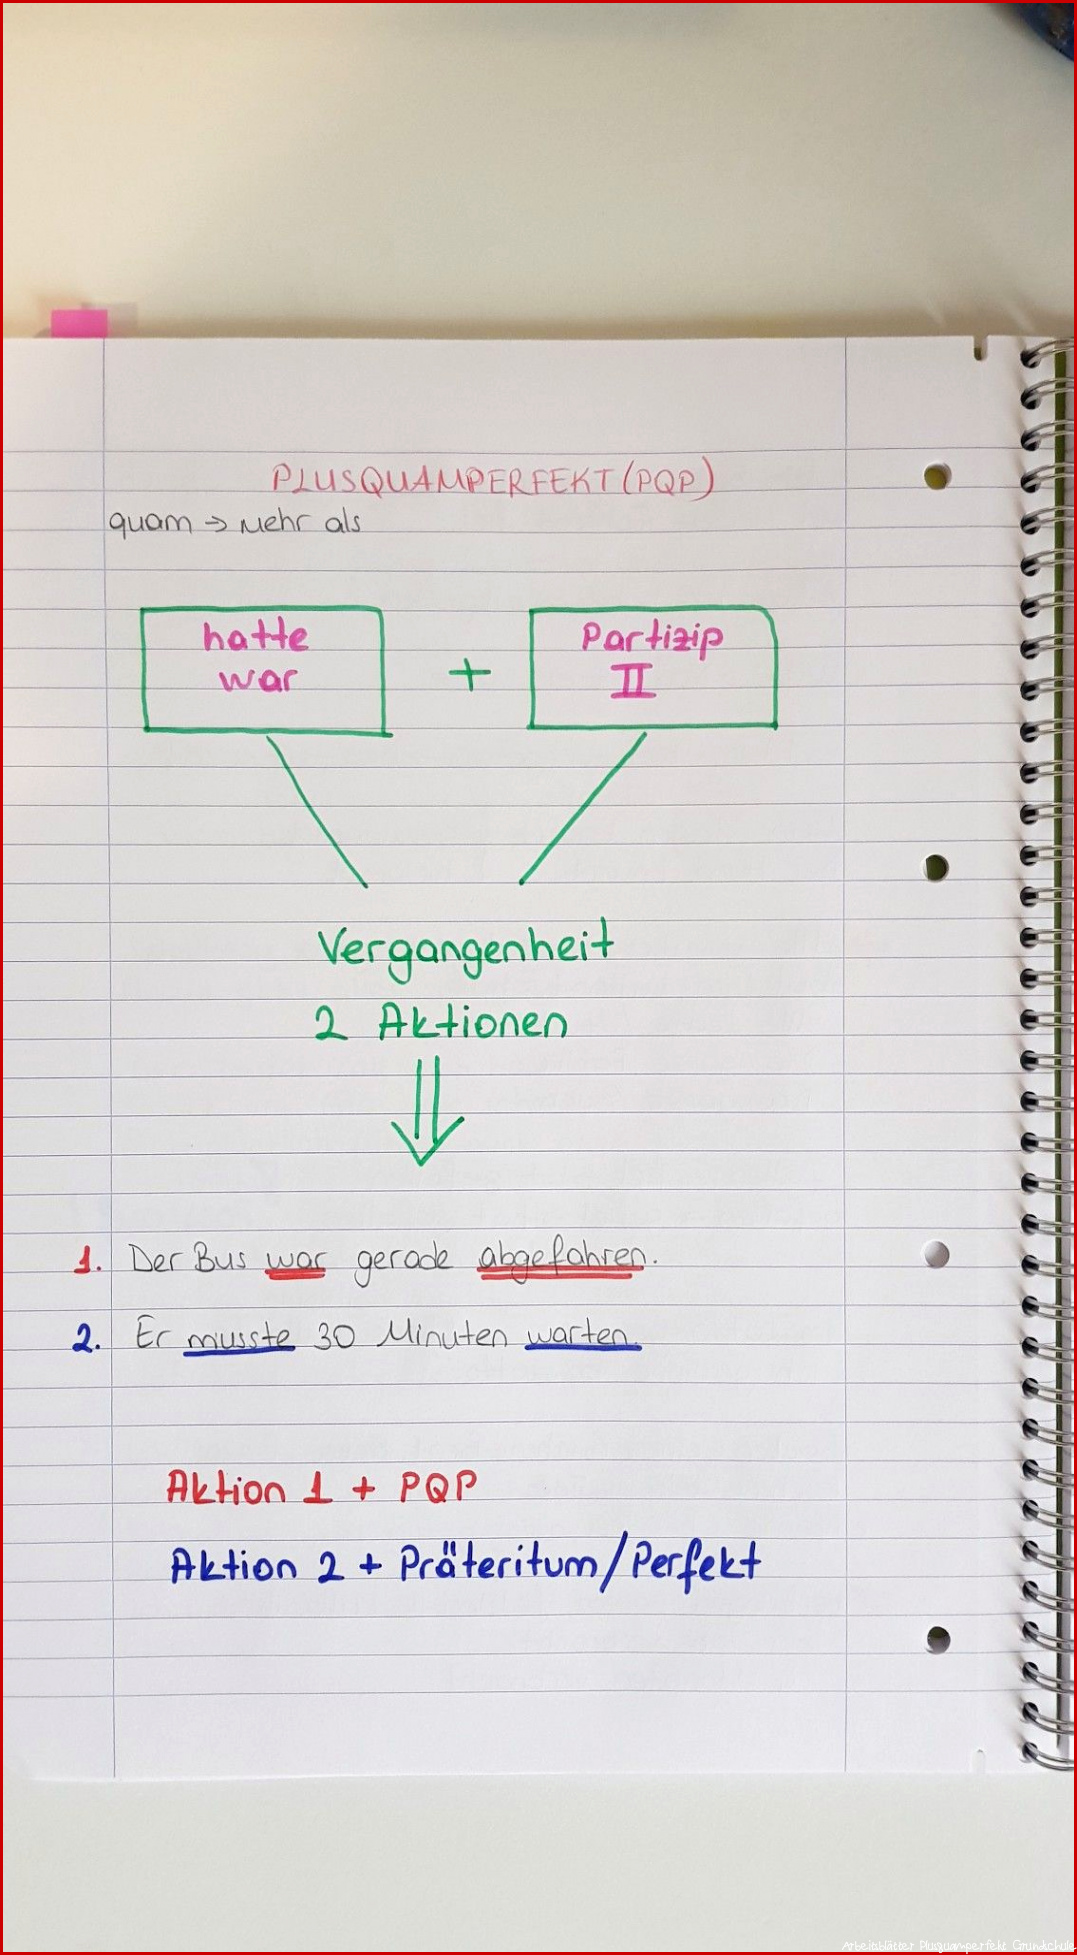 PLUSQUAMPERFEKT (PQP)
quam → mehr als
hatte
war
+
Partizip
II
Vergangenheit
2 Aktionen
1. Der Bus war gerade abgefahren.
2. Er musste 30 Minuten warten.
Aktion 1 + PQP
Aktion 2 + Präteritum/Perfekt
Arbeitsblätter Plusquamperfekt Grundschule